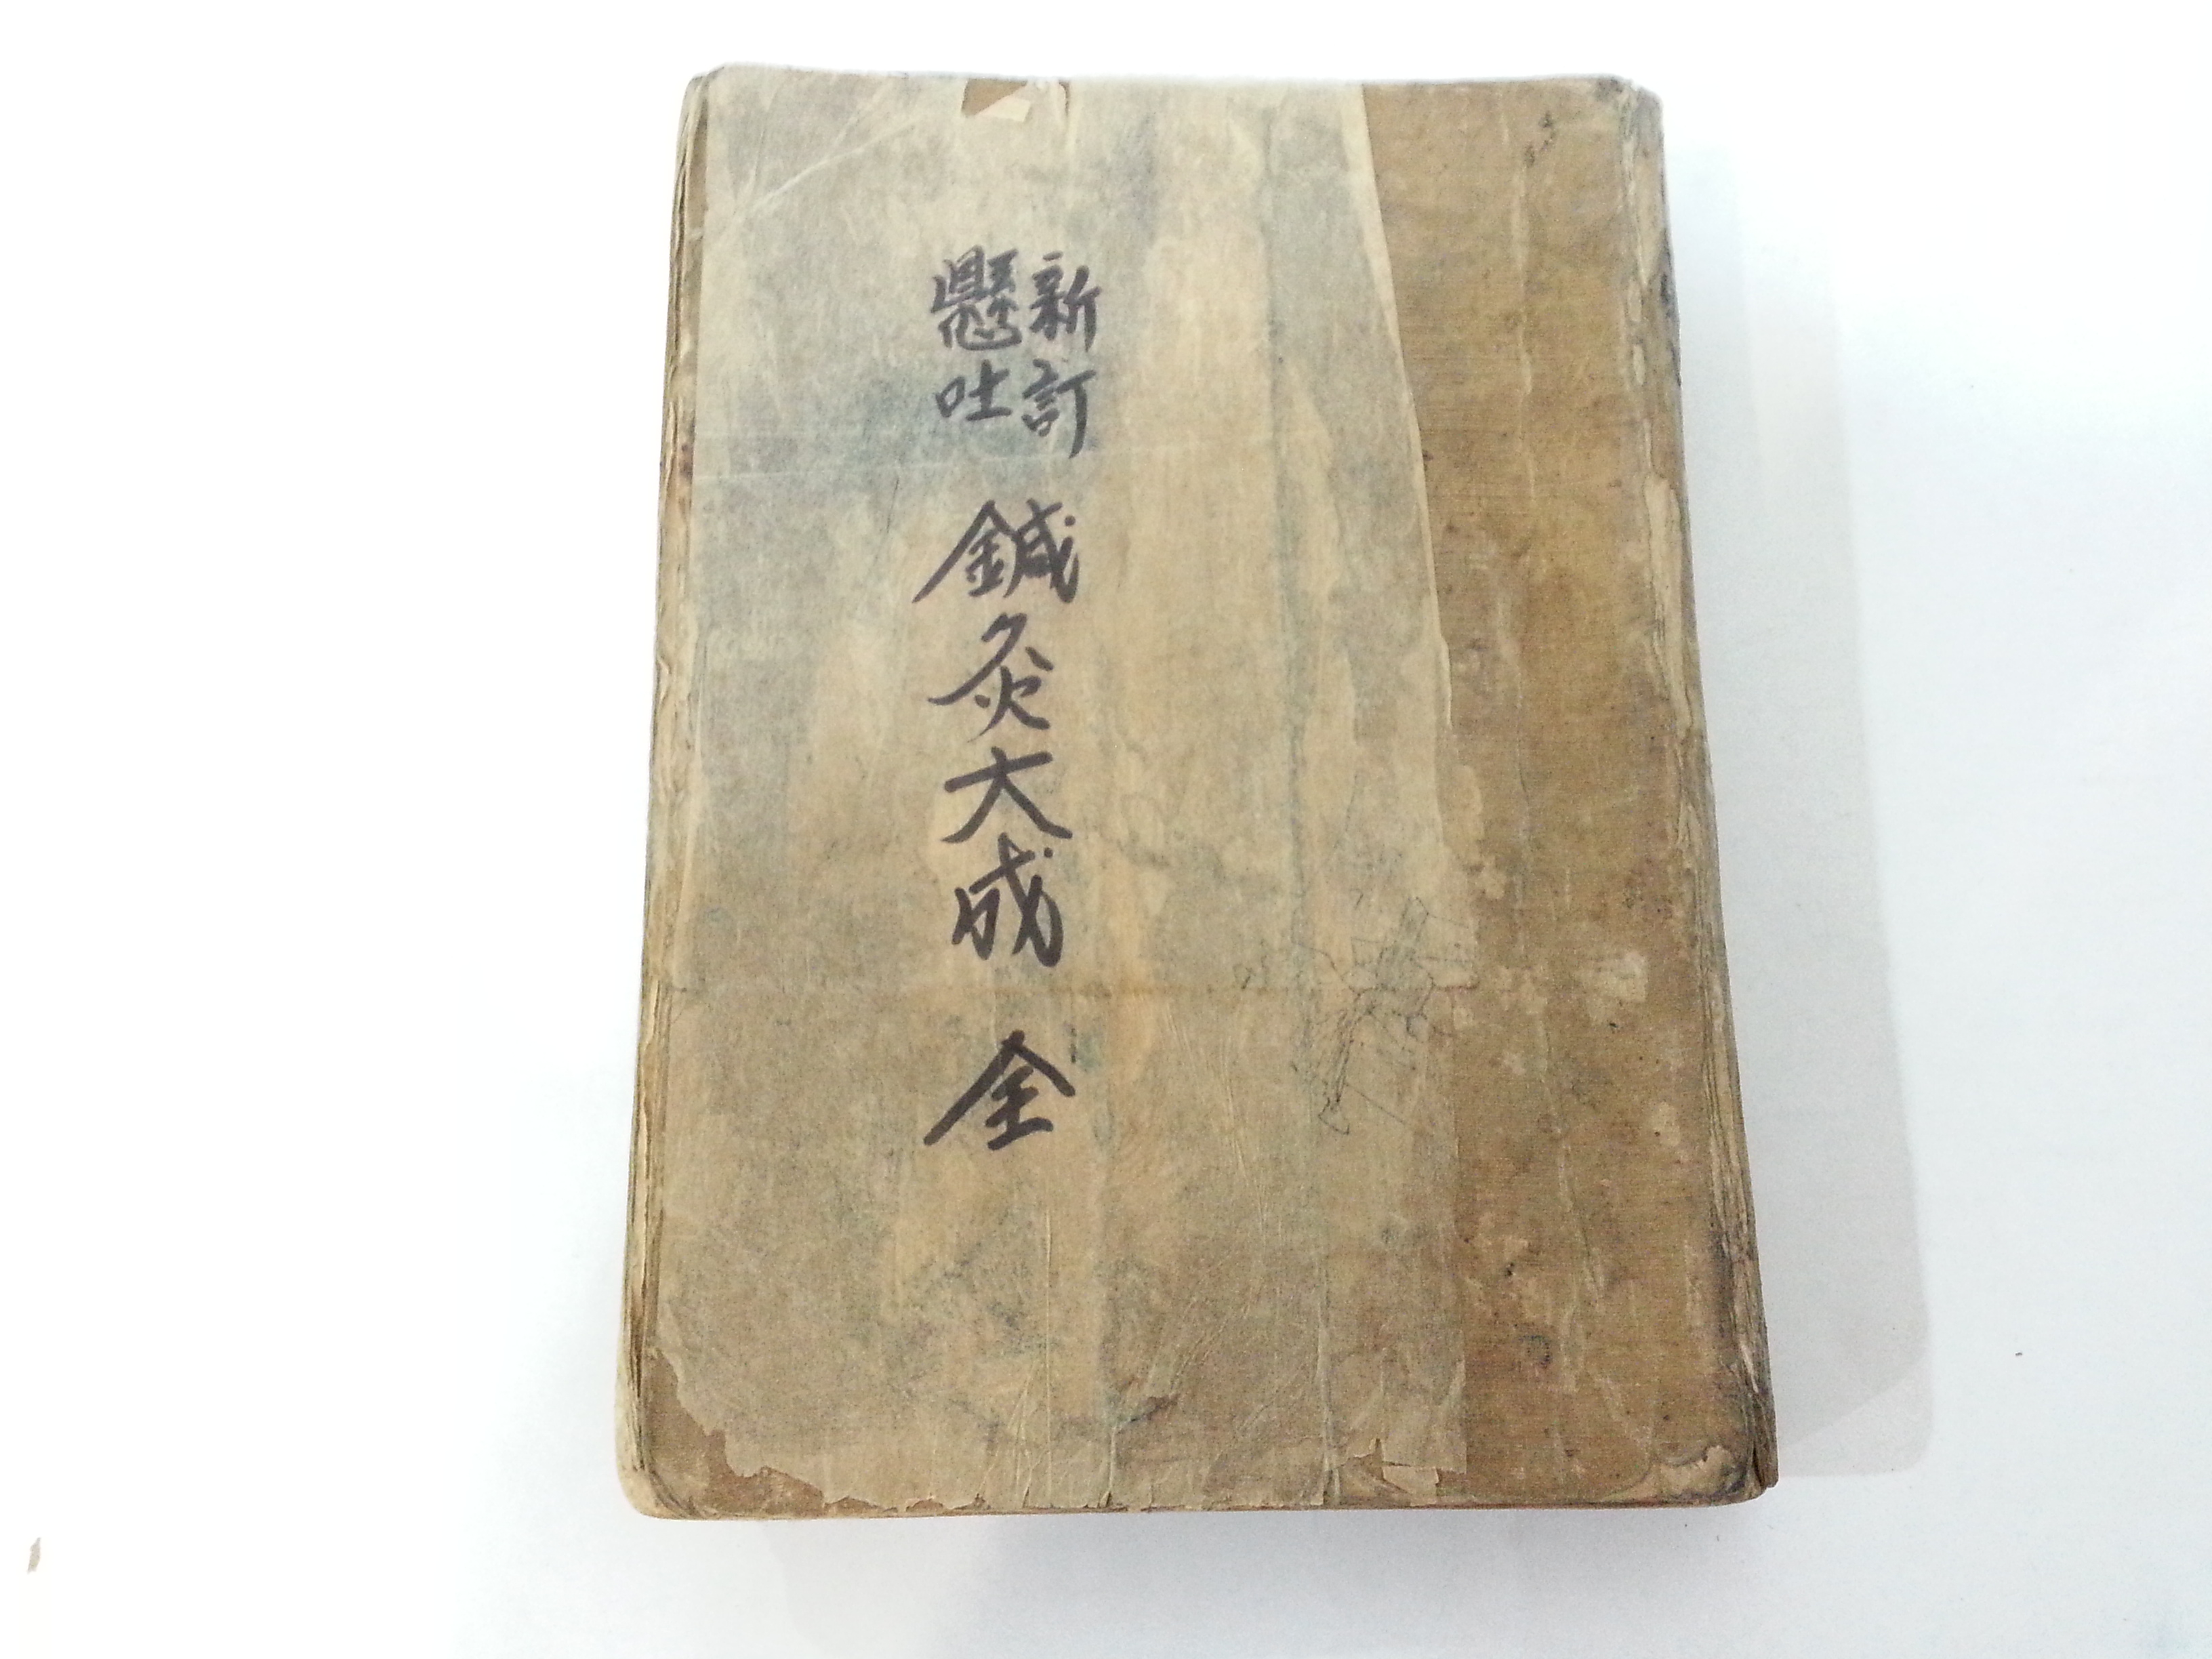 新訂
懸吐
鍼灸大成 全